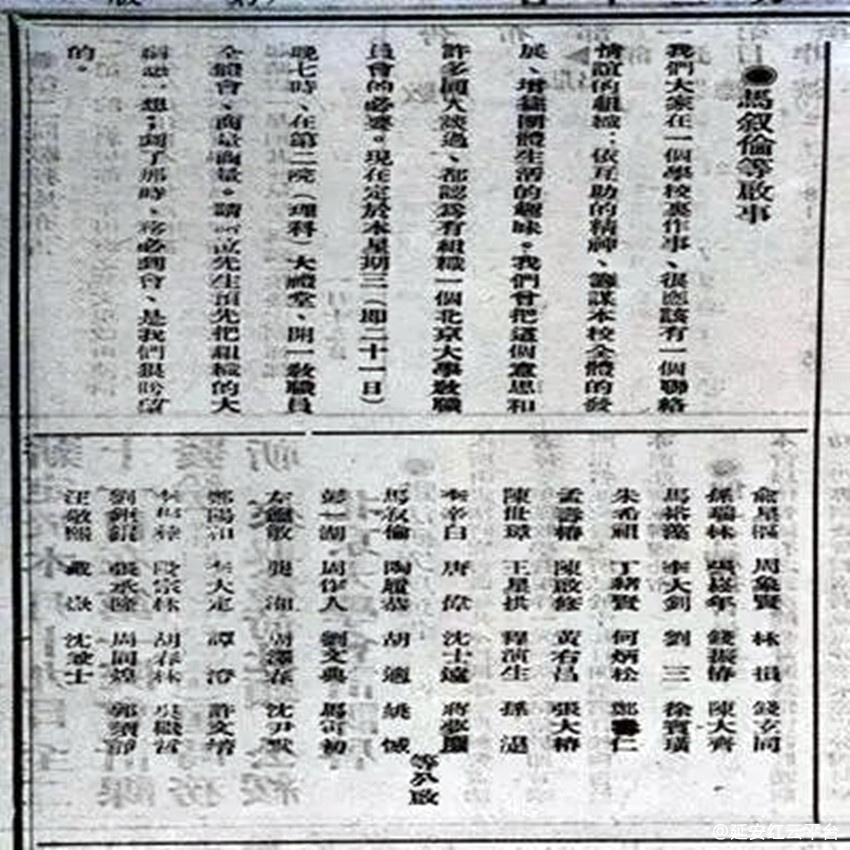 ●馬叙倫等啟事
我們大家在一個學校裏作事、很應該有一個聯絡
情誼的組織：依互助的精神、籌謀本校全體的發
展、增益團體生活的趣味。我們會把這個意思和
許多同人談過、都認爲有組織一個北京大學敎職
員會的必要。現在定於本星期三（即二十一日）
晚七時、在第二院（理科）大禮堂、開一敎職員
全體會、商量商量。請 位先生預先把組織的大
想一想；到了那時、務必到會、是我們很盼望
的。
俞星樞 周象賢 林損 錢玄同
孫瑞林 張崧年 錢振椿 陳大齊
馬裕藻 李大釗 劉三 徐寶璜
朱希祖 丁緒賢 何炳松 鄭壽仁
孟壽椿 陳啟修 黃右昌 張大椿
陳世璋 王星拱 程演生 孫
李辛白 唐偉 沈士遠 蔣夢麟
馬叙倫 陶履恭 胡適 姚憾
等公啟
彭一湖 周作人 劉文典 馬寅初
左 龔湘 周澤春 沈尹默
鄭陽和 李大定 譚 許文
段宗林 胡春林 吳
劉 張承隆 周同煌 郭須靜
汪敬熙 戴 沈兼士
@延安红云平台